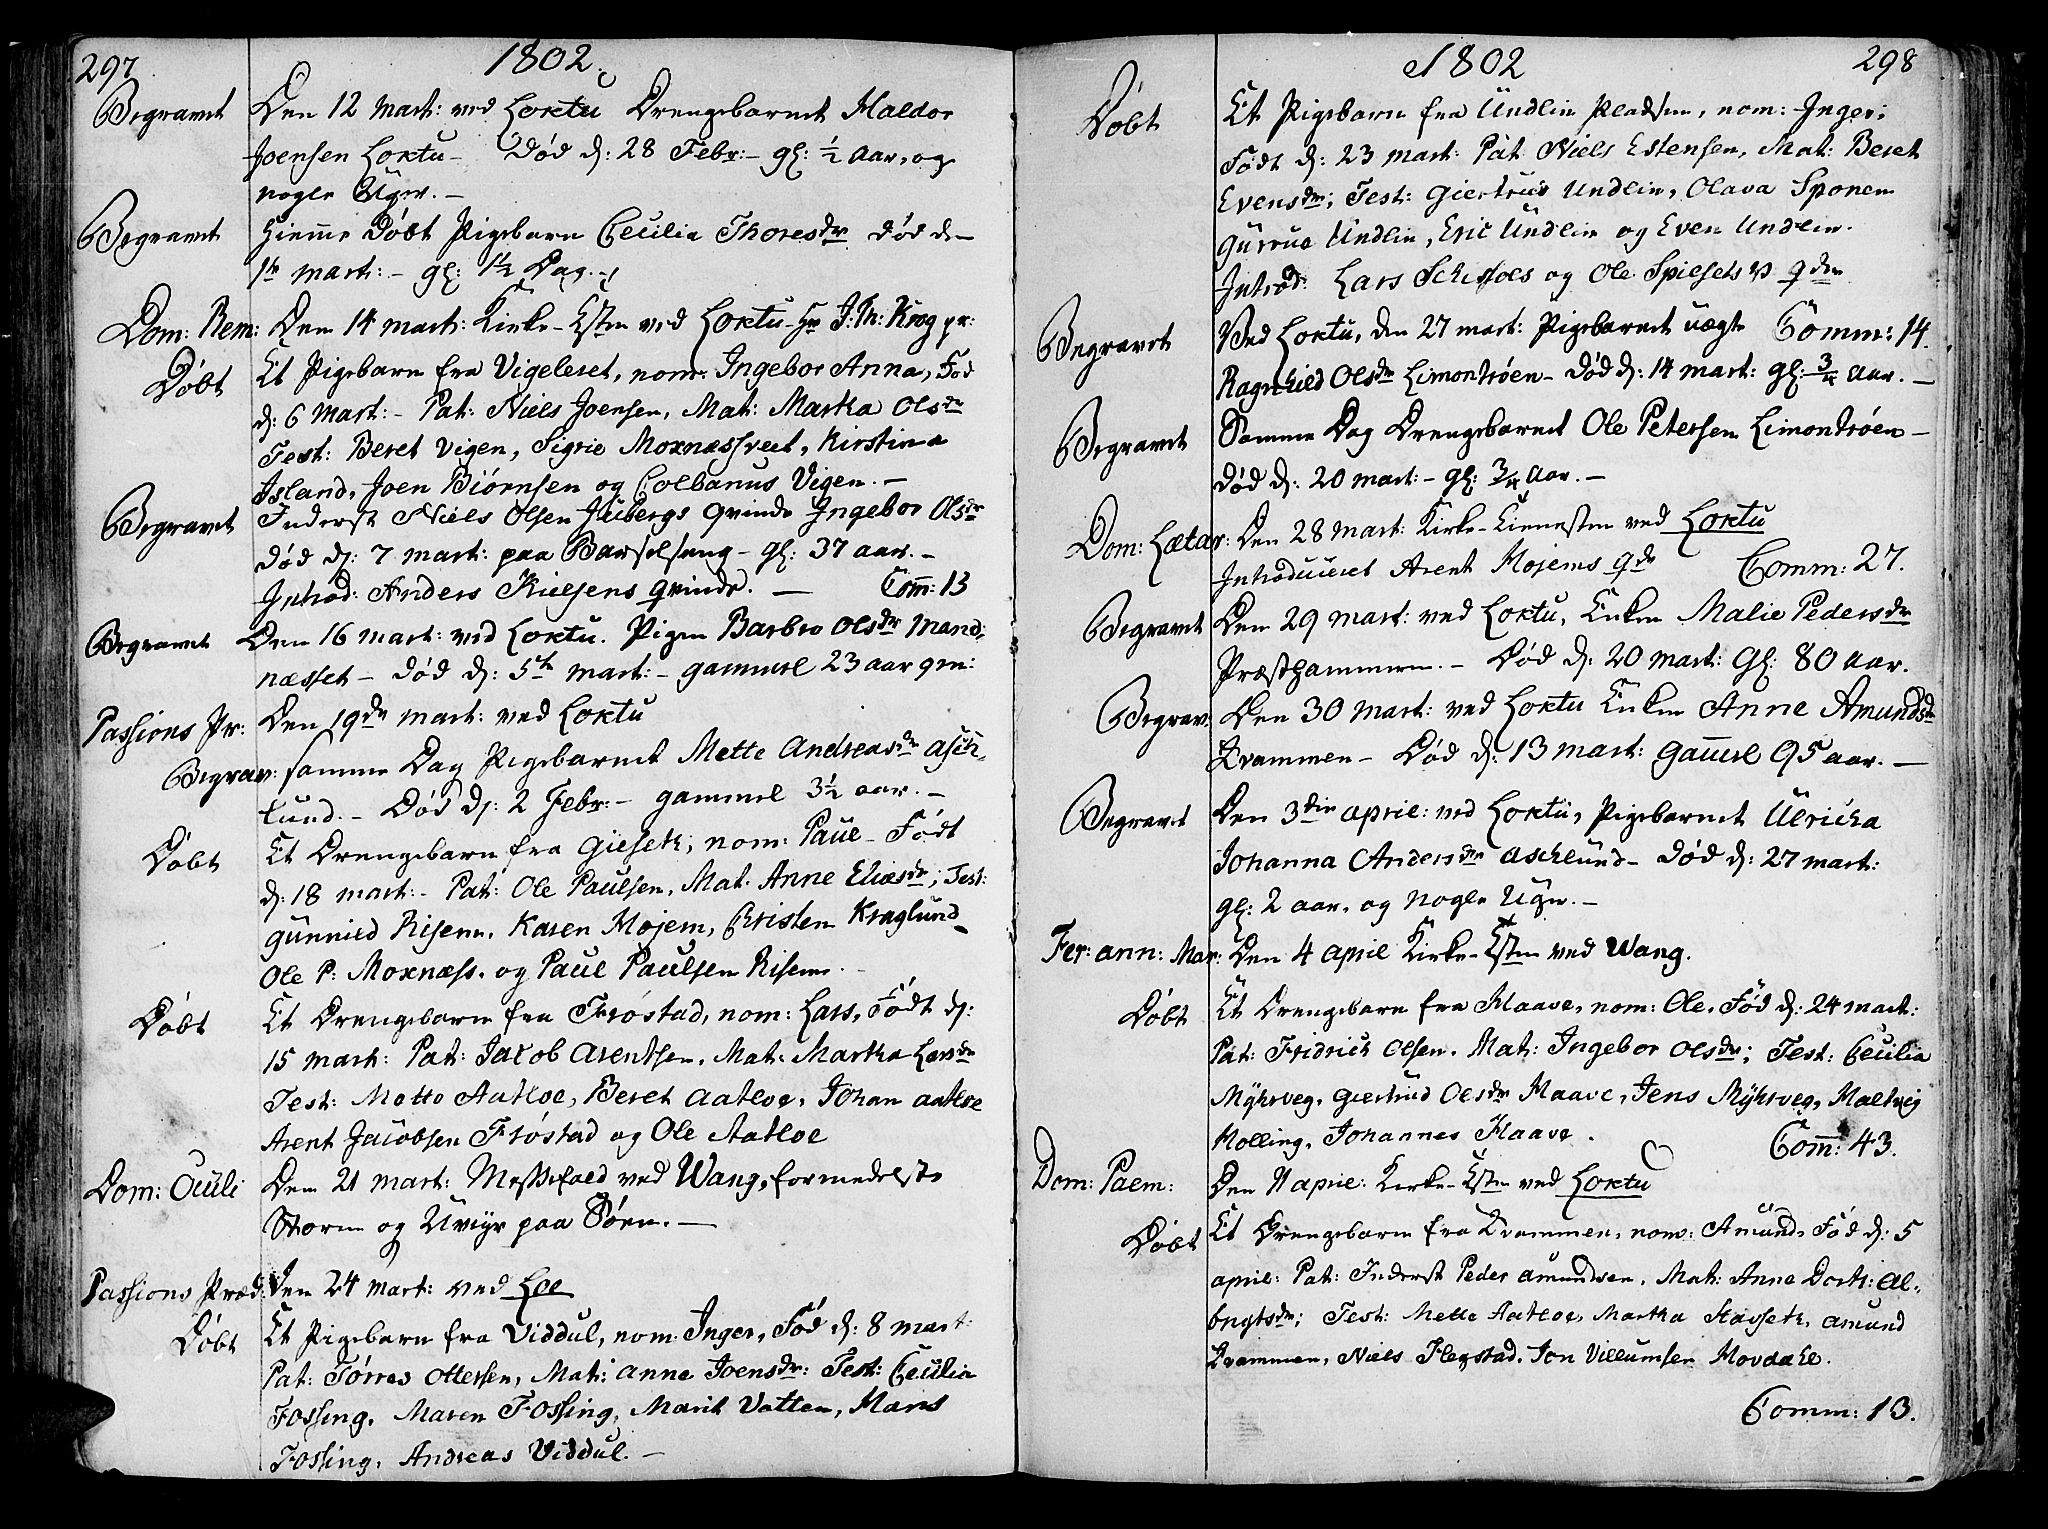 297 1802.
Begravet Den 12 Mart: ved Loktu Drengebarnet Haldor
Joensen Loktu – Død d: 28 Febr: – gl: ½ Aar, og
nogle Uger. –
Begravet Hiemme Døbt Pigebarn Cecilia Thoresdr Død den
1te mart: – gl: 1½ Dag. –
Dom: Rem: Den 14 mart: Kirke-Esten ved Loktu – Hr J: Th: Krog pr:
Døbt Et Pigebarn fra Vigeleret, nom: Ingebor Anna, Fød
d: 6 Mart: – Pat: Niels Joensen, Mat: Martha Olsdr
Test: Beret Vigen, Sigrie Moxnæssveet, Kirstina
Island, Joen Biørnsen og Colbanus Vigen. –
Begravet Inderst Niels Olsen Jubergs qvinde Ingebor Olsdr
Død d: 7 mart: paa Barselseng – gl: 37 aar. –
Introd: Anders Kielsens qvinde. – Com: 13
Begravet Den 16 mart: ved Loktu. Pigen Barbro Olsdr Mand-
næsset – Død d: 5te mart: – gammel 23 aar
Passions Pr: Den 19de mart: ved Loktu
Begrav: samme Dag Pigebarnet Mette Andreasdr Asch-
lund. – Død d: 2 Febr: – gammel 3½ aar. –
Døbt Et Drengebarn fra Gieseth, nom: Paul – Født
d: 18 mart: – Pat: Ole Paulsen, Mat. Anne Eliasdr; Test:
Gunnild Risem, Karen Mojem, Christen Kraglund
Ole P: Moxnæss. og Paul Paulsen Risem.
Døbt Et Drengebarn fra Frøstad, nom: Lars, Født d:
15 mart: Pat: Jacob Arentsen, Mat: Martha Larsdr
Test: Mette Aatloe, Beret Aatloe, Johan Aatloe
Arent Jacobsen Frøstad og Ole Aatloe
Dom: Oculi Den 21 mart: Messefald ved Wang, formedelst
Storm og Uveyr paa Søen. –
Passions Præd: Den 24 mart: ved Loe
Døbt Et Pigebarn fra Viddul, nom: Inger, Fød d: 8 mart:
Pat: Tørres Ottersen, Mat: Anne Joensdr: Test: Cecilia
Fossing, Maren Fossing, Marit Vatten, Hans
Fossing, Andreas Viddul. –
1802 298
Døbt Et Pigebarn fra Undlin Pladsen, nom: Inger;
Født d: 23 mart: Pat: Niels Estensen, Mat: Beret
Evensdr; Test: Giertrud Undlin, Olava Sponem
Gurrue Undlin, Eric Undlin og Even Undlin.
Introd: Lars Schissols og Ole Spiesets qder
Comm: 14.
Begravet Ved Loktu, den 27 mart: Pigebarnet uægte
Ragnhild Olsdr Limontrøen – Død d: 14 mart: gl: ¾ Aar. –
Begravet Samme Dag Drengebarnet Ole Petersen Limontrøen –
Død d: 20 mart: – gl: ¾ Aar. –
Dom: Lætar: Den 28 mart: Kirke-Tienesten ved Loktu
Introduceret Arent Mojems qde Comm: 27.
Begravet Den 29 mart: ved Loktu, Enken Malie Pedersdr
Præsthammern. – Død d: 20 mart: Gl: 80 aar.
Begrav: Den 30 mart: ved Loktu Enken Anne Amundsdr
Kvammen – Død d: 13 mart: gammel 95 aar. –
Begravet Den 3die april: ved Loktu, Pigebarnet Ulricha
Johanna Andersdr Aschlund – Død d: 27 mart:
gl: 2 aar, og nogle Uger. –
Fer: ann: Mar: Den 4 april Kirke-Esten ved Wang.
Døbt Et Drengebarn fra Haave, nom: Ole, Fød d: 24 mart:
Pat: Fridrich Olsen. Mat: Ingebor Olsdr; Test: Cecilia
Myhrveg, Giertrud Olsdr Haave, Jens Myhrveg, Haltvig
Holling, Johannes Haave. Com: 43.
Dom: Palm: Den 11 april: Kirke-Esten ved Loktu
Døbt Et Drengebarn fra Kvammen, nom: Amund, Fød d: 5
april: Pat: Inderst Peder Amundsen, Mat: Anne Dorth: Al-
brigtsdr; Test: Mette Aatloe, Martha Hasseth, Amund
Kvammen, Niels Flegstad, Jon Villumsen Hovdahl.
Comm: 13.